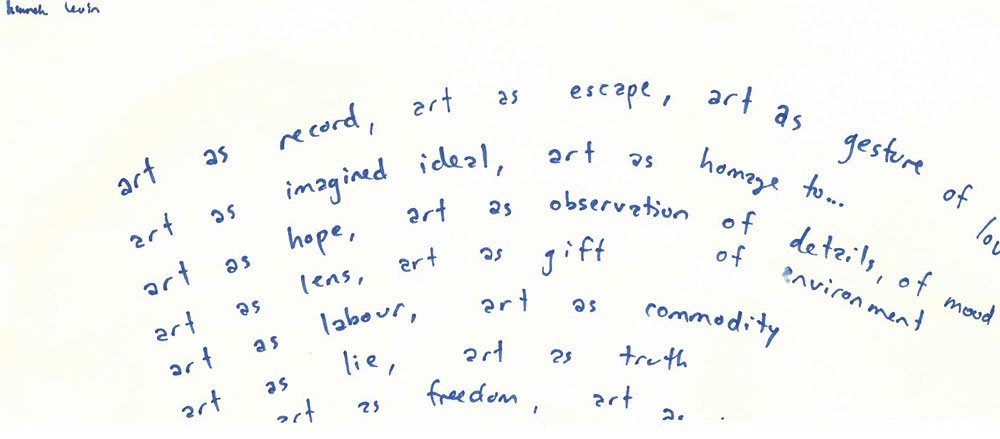 hannah levin
art as record, art as escape, art as gesture of
art as imagined ideal, art as homage to...
art as hope, art as observation of details, of mood
art as lens, art as gift of environment
art as labour, art as commodity
art as lie, art as truth
art as freedom, art